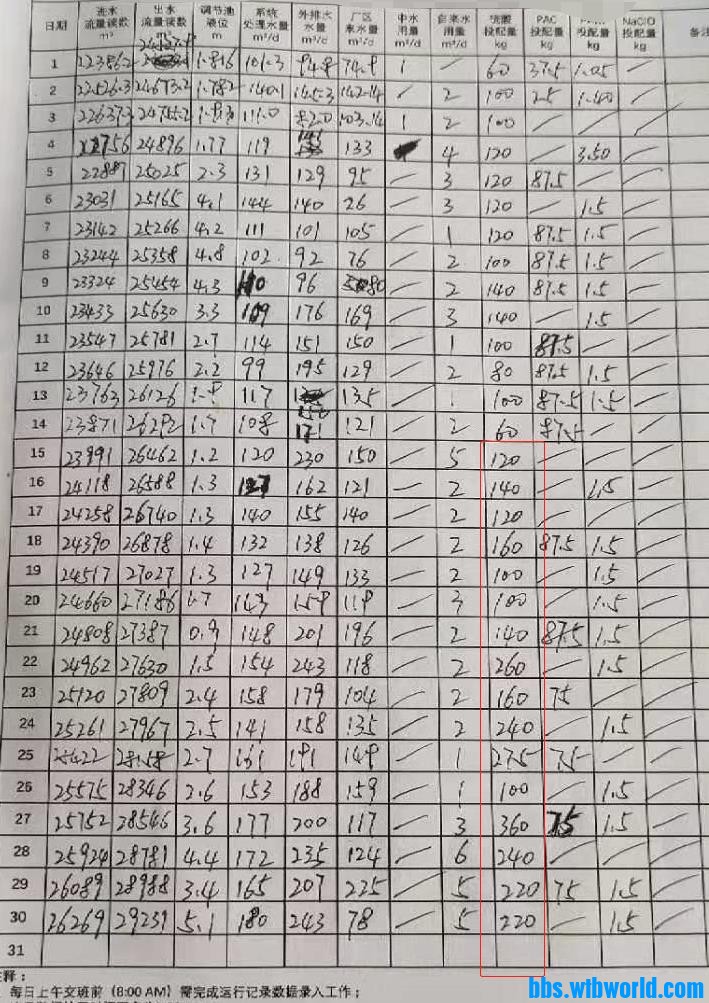 日期 进水流量读数 m³ 出水流量读数 m³ 调节池液位 m 系统处理水量 m³/d 外排水水量 m³/d 厂区来水量 m³/d 中水用量 m³/d 自来水用量 m³/d 硫酸投配量 kg PAC投配量 kg 投配量 kg NaClO投配量 kg 备注
1 22386.2 1.816 101.3 94.8 74.9 1 / 60 37.5 1.05 /
2 22526.3 24673.2 1.782 140.1 145.3 142.14 / 2 100 25 1.40 /
3 22637.3 24755.2 111.0 82.0 103.14 1 2 100 / / /
4 22756 24896 1.77 119 141 133 4 120 / 3.50 /
5 22887 25025 2.3 131 129 95 / 3 120 87.5 / /
6 23031 25165 4.1 144 140 26 / 3 120 / 1.5 /
7 23142 25266 4.2 111 101 105 / 1 120 87.5 1.5 /
8 23244 25358 4.8 102 92 76 / 2 100 87.5 1.5 /
9 23324 25454 4.3 110 96 80 / 2 140 87.5 1.5 /
10 23433 25630 3.3 109 176 169 / 3 140 / 1.5 /
11 23547 25781 2.7 114 151 150 / 1 100 87.5 / /
12 23646 25976 2.2 99 195 129 / 2 80 87.5 1.5 /
13 23763 26126 1.9 117 150 135 / 1 100 87.5 1.5 /
14 23871 26292 1.7 108 171 121 / 2 60 87.5 / /
15 23991 26462 1.2 120 230 150 / 5 120 / / /
16 24118 26588 1.3 127 162 121 / 2 140 / 1.5 /
17 24258 26740 1.3 140 155 140 / 2 120 / / /
18 24390 26878 1.4 132 138 126 / 2 160 87.5 1.5 /
19 24517 27027 1.3 127 149 133 / 2 100 / 1.5 /
20 24660 27186 1.7 143 159 119 / 3 100 / 1.5 /
21 24808 27387 0.9 148 201 196 / 2 140 87.5 1.5 /
22 24962 27630 1.5 154 243 118 / 2 260 / 1.5 /
23 25120 27809 2.4 158 179 104 / 2 160 75 / /
24 25261 27967 2.5 141 158 135 / 2 240 / 1.5 /
25 25422 28158 2.7 161 191 149 / 1 275 75 / /
26 25575 28346 2.6 153 188 159 / 1 100 / 1.5 /
27 25752 28546 3.6 177 200 117 / 3 360 75 1.5 /
28 25924 28781 4.4 172 235 124 / 6 240 / / /
29 26089 28988 3.4 165 207 225 / 5 220 75 1.5 /
30 26269 29231 5.1 180 243 78 / 5 220 / 1.5 /
31
注释：
每日上午交班前（8:00 AM）需完成运行记录数据录入工作；
bbs.wtbworld.com